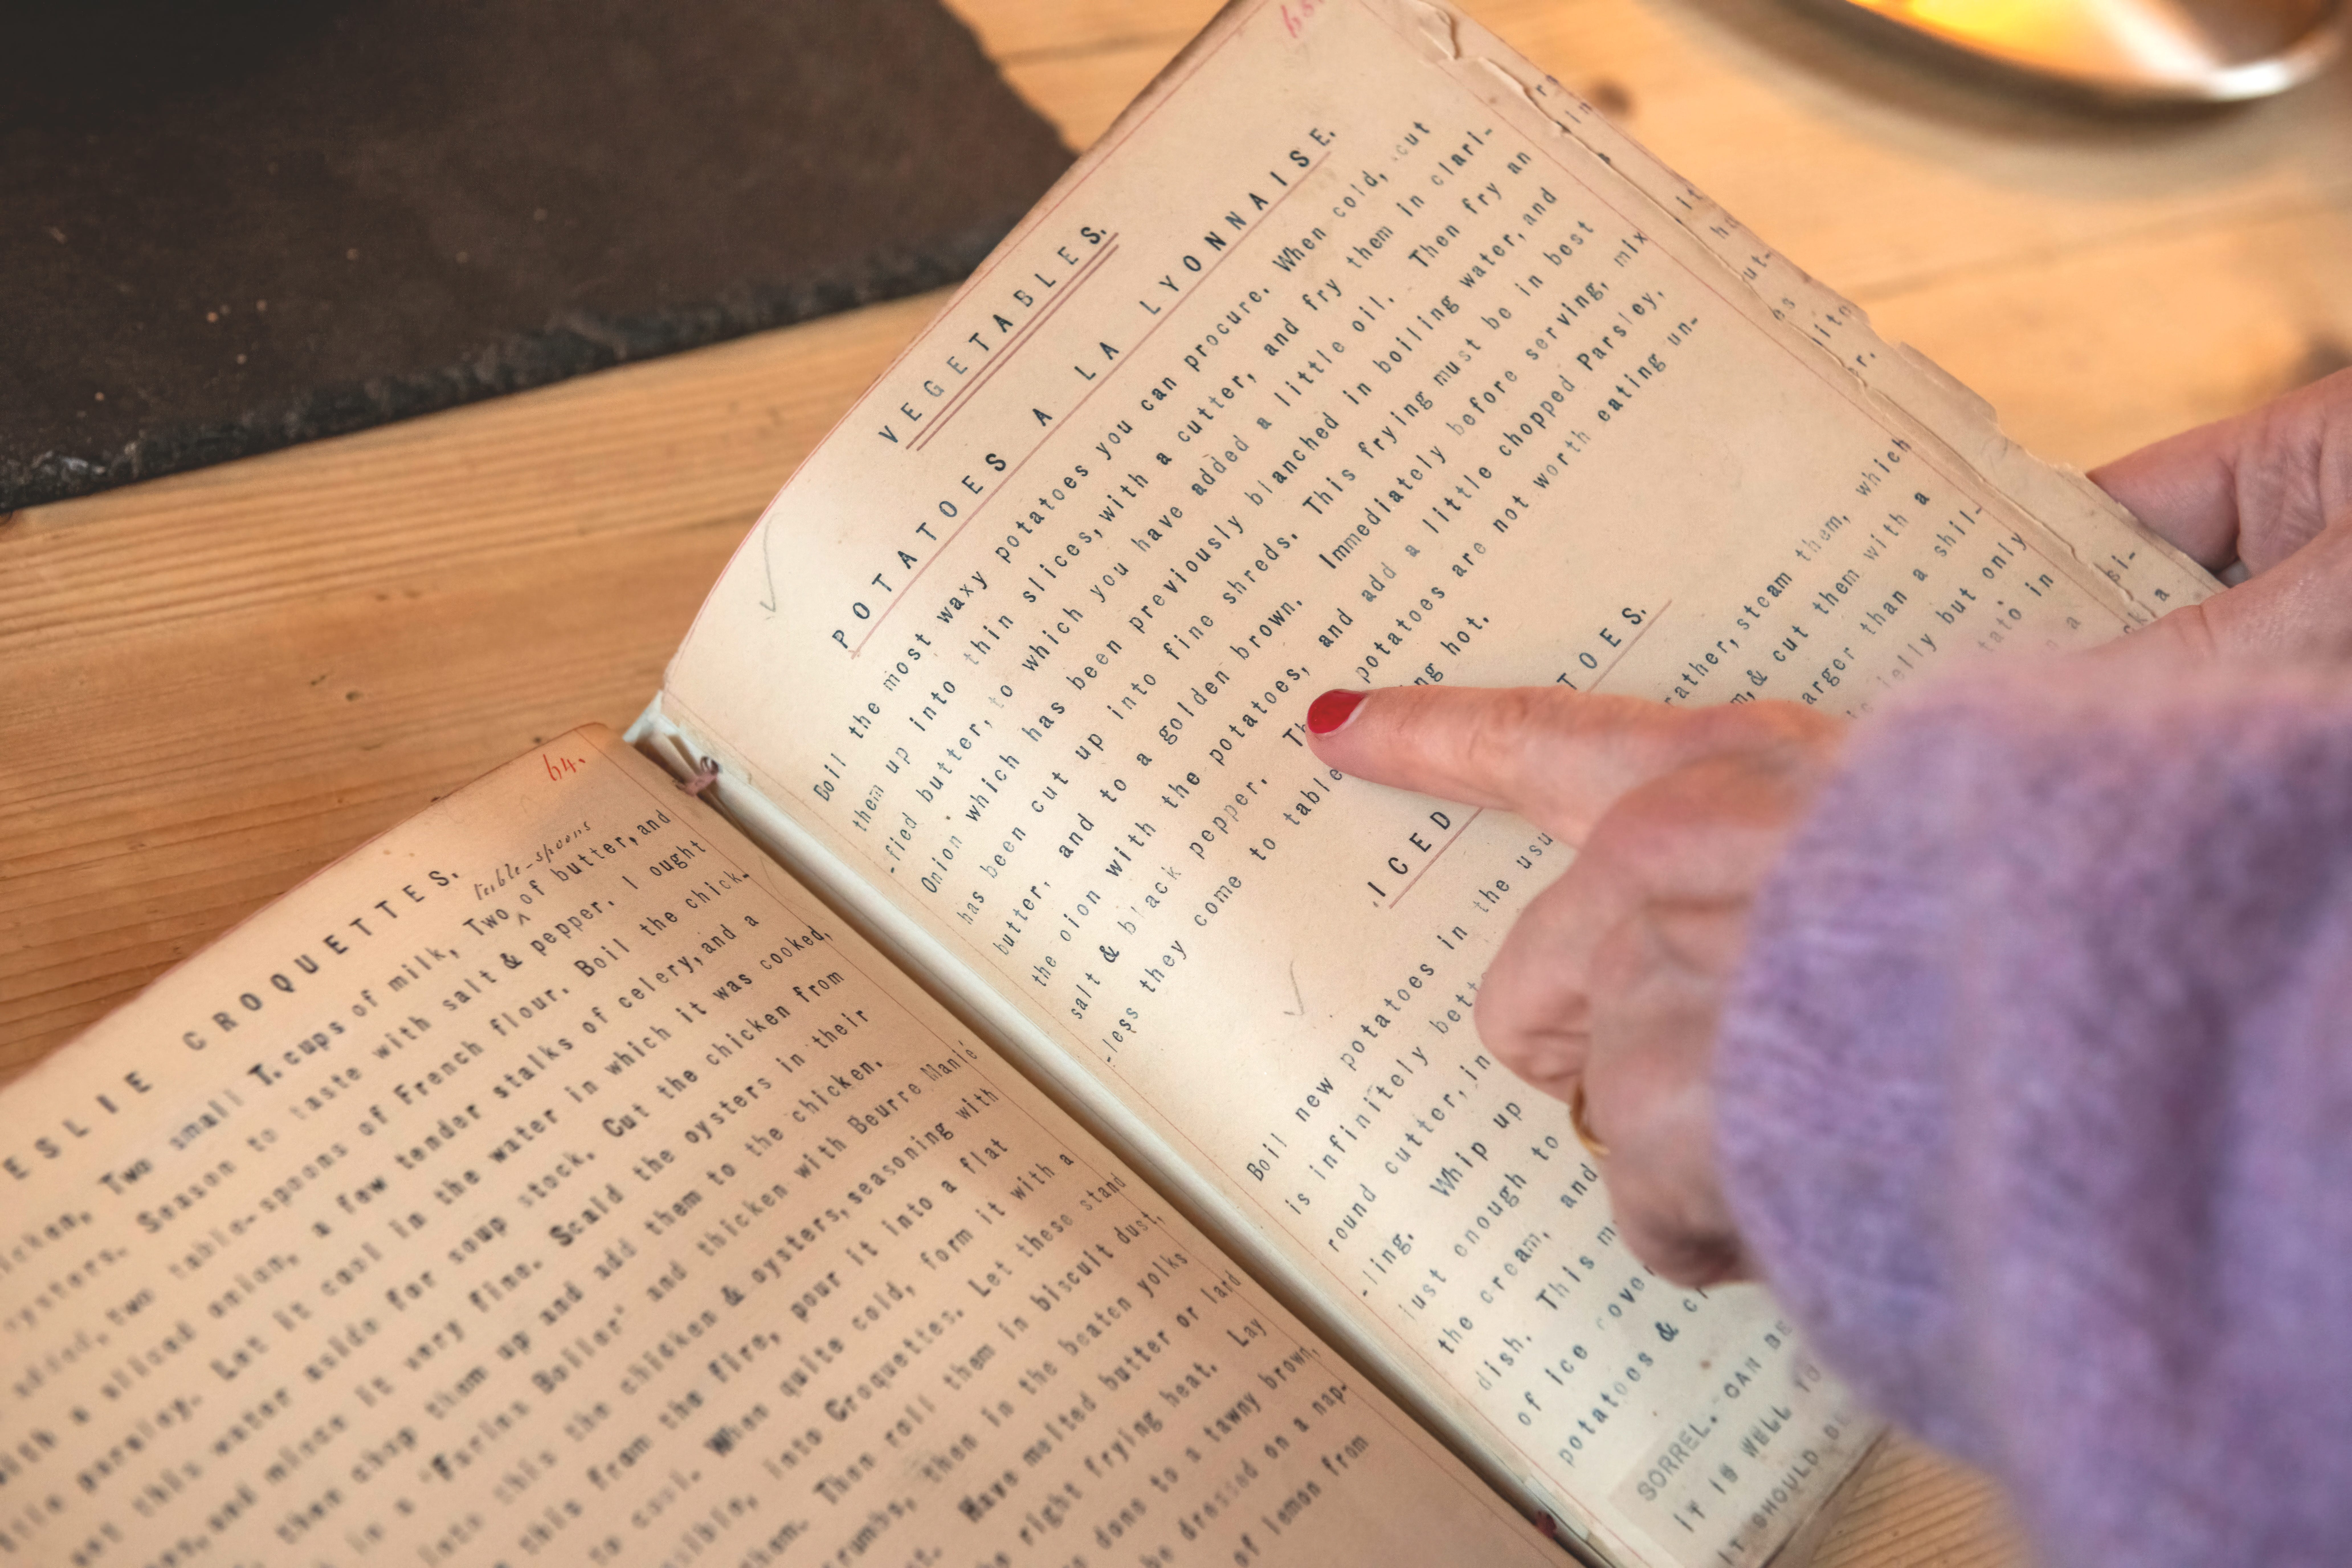 64.
ESLIE CROQUETTES.
table-spoons
Two small T.cups of milk, Two of butter, and
Season to taste with salt & pepper. I ought
added, two table-spoons of French flour. Boil the chick-
with a sliced onion, a few tender stalks of celery, and a
little parsley. Let it cool in the water in which it was cooked,
set this water aside for soup stock. Cut the chicken from
and mince it very fine. Scald the oysters in their
then chop them up and add them to the chicken.
in a "Farina Boiler" and thicken with Beurre Manié
into this the chicken & oysters, seasoning with
this from the fire, pour it into a flat
to cool. When quite cold, form it with a
into Croquettes. Let these stand
Then roll them in biscuit dust,
crumbs, then in the beaten yolks
Have melted butter or lard
the right frying heat. Lay
done to a tawny brown,
be dressed on a nap-
of lemon from
65.
VEGETABLES.
POTATOES A LA LYONNAISE.
Boil the most waxy potatoes you can procure. When cold, cut
them up into thin slices, with a cutter, and fry them in clari-
-fied butter, to which you have added a little oil. Then fry an
Onion which has been previously blanched in boiling water, and
has been cut up into fine shreds. This frying must be in best
butter, and to a golden brown. Immediately before serving, mix
the oion with the potatoes, and add a little chopped Parsley,
salt & black pepper. Th potatoes are not worth eating un-
-less they come to table ng hot.
ICED TOES.
Boil new potatoes in the usu rather, steam them, which
is infinitely bett m, & cut them with a
round cutter, in arger than a shil-
-ling. Whip up jelly but only
just enough to tato in
the cream, and n a
dish. This m
of ice over
potatoes & cr
SORREL. CAN BE
IT IS WELL TO
IT SHOULD BE